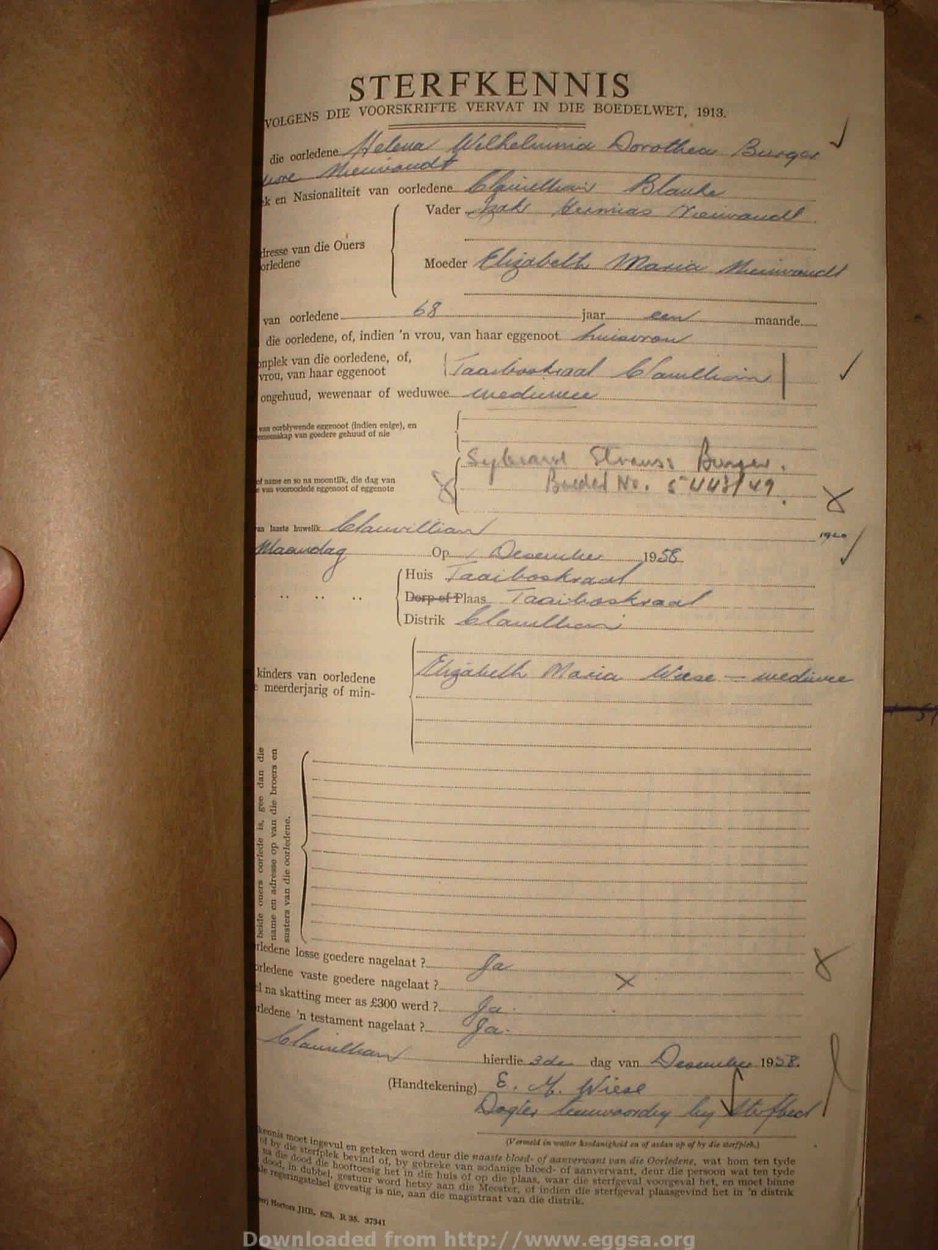 STERFKENNIS
VOLGENS DIE VOORSKRIFTE VERVAT IN DIE BOEDELWET, 1913.
die oorledene Helena Wilhelmina Dorothea Burger
Nieuwoudt
en Nasionaliteit van oorledene Clanwilliam Blanke
Vader Izak Nieuwoudt
dresse van die Ouers
orledene
Moeder Elizabeth Maria Nieuwoudt
van oorledene 68 jaar een maande
die oorledene, of, indien 'n vrou, van haar eggenoot huisvrou
onplek van die oorledene, of,
vrou, van haar eggenoot Taaiboskraal Clanwilliam
ongehuud, wewenaar of weduwee weduwee
van oorblywende eggenoot (indien enige), en
gemeenskap van goedere gehuud of nie
Sybrand Strauss Burger.
Boedel No. 5443/49.
name en so na moontlik, die dag van
van vooroorlede eggenoot of eggenote
van laaste huwelik Clanwilliam
1920
Maandag Op 1 Desember 1958
Huis Taaiboskraal
Dorp of Plaas Taaiboskraal
Distrik Clanwilliam
kinders van oorledene
meerderjarig of min-
Elizabeth Maria Wiese — weduwee
beide ouers oorlede is, gee dan die
name en adresse op van die broers en
susters van die oorledene.
rledene losse goedere nagelaat ? Ja
orledene vaste goedere nagelaat ? X
el na skatting meer as £300 werd ? Ja.
rledene 'n testament nagelaat ? Ja.
Clanwilliam hierdie 3de dag van Desember 1958.
(Handtekening) E. M. Wiese
Dogter teenwoordig by sterfbed
(Vermeld in watter hoedanigheid en of aldan op of by die sterfplek.)
kennis moet ingevul en geteken word deur die naaste bloed- of aanverwant van die Oorledene, wat hom ten tyde
of by die sterfplek bevind of, by gebreke van sodanige bloed- of aanverwant, deur die persoon wat ten tyde
na die dood die hooftoesig het in die huis of op die plaas, waar die sterfgeval voorgeval het, en moet binne
dood, in dubbel, gestuur word hetsy aan die Meester, of indien die sterfgeval plaasgevind het in 'n distrik
regeringsetel gevestig is nie, aan die magistraat van die distrik.
Hortors JHB, 629. R 35. 37341
Downloaded from http://www.eggsa.org